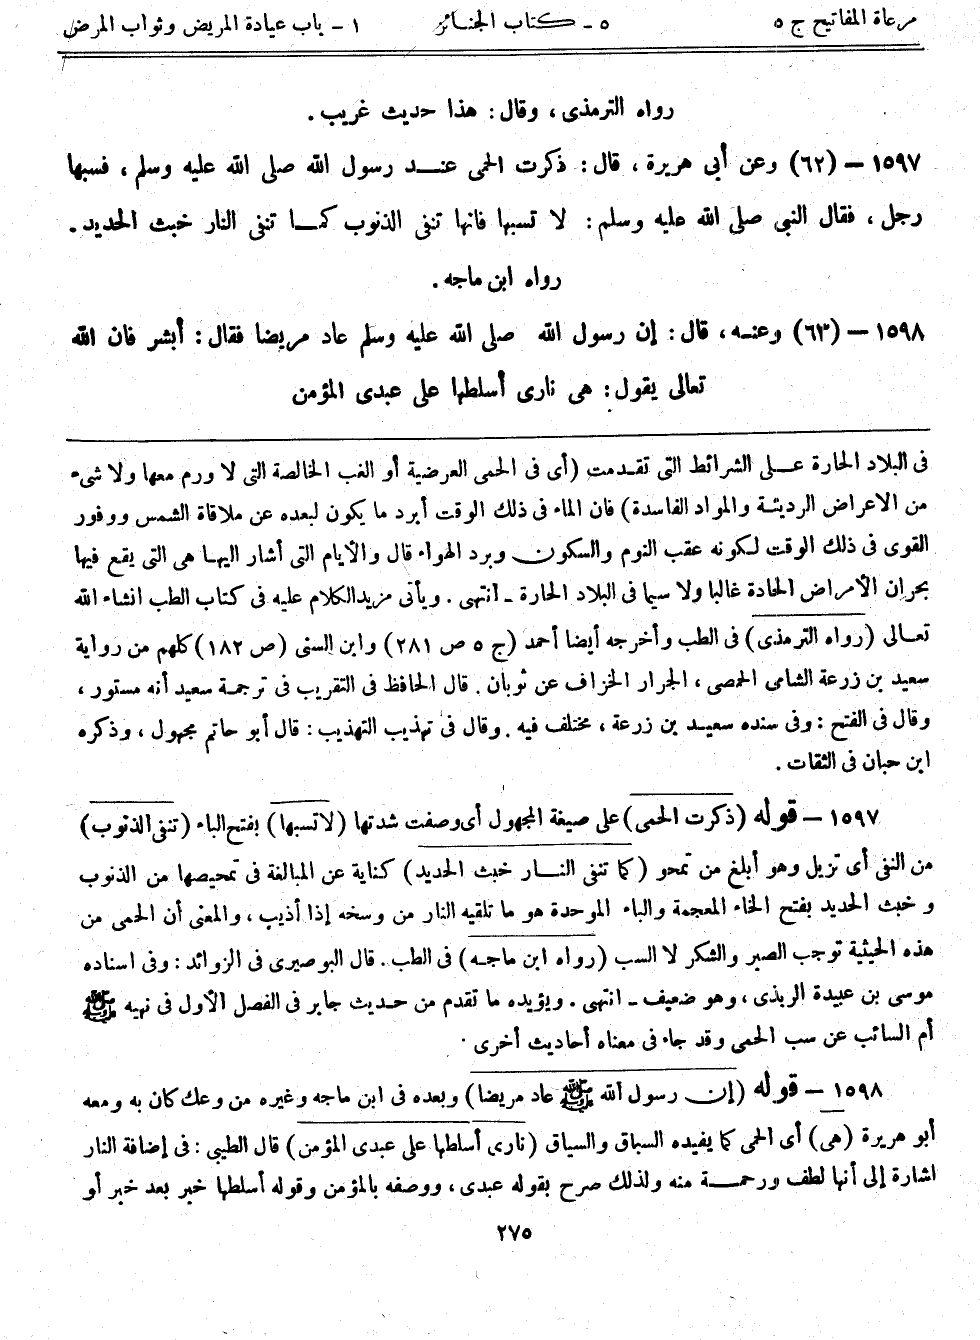 مرعاة المفاتيح ج ٥ ٥ ـ كتاب الجنائز ١ ـ باب عيادة المريض وثواب المرض
رواه الترمذى، وقال: هذا حديث غريب.
١٥٩٧ – (٦٢) وعن أبي هريرة، قال: ذكرت الحمى عند رسول الله صلى الله عليه وسلم، فسبها
رجل، فقال النبي صلى الله عليه وسلم: لا تسبها فانها تنفى الذنوب كما تنفى النار خبث الحديد.
رواه ابن ماجه.
١٥٩٨ – (٦٣) وعنه، قال: إن رسول الله صلى الله عليه وسلم عاد مريضا فقال: أبشر فان الله
تعالى يقول: هى نارى أسلطها على عبدى المؤمن
فى البلاد الحارة على الشرائط التى تقدمت (أى فى الحمى العرضية أو الغب الخالصة التى لا ورم معها ولا شىء
من الاعراض الرديئة والمواد الفاسدة) فان الماء فى ذلك الوقت أبرد ما يكون لبعده عن ملاقاة الشمس ووفور
القوى فى ذلك الوقت لكونه عقب النوم والسكون وبرد الهواء قال والأيام التى أشار اليها هى التى يقع فيها
بحران الأمراض الحادة غالبا ولا سيما فى البلاد الحارة ـ انتهى. ويأتى مزيد الكلام عليه فى كتاب الطب انشاء الله
تعالى (رواه الترمذى) فى الطب وأخرجه أيضا أحمد (ج ٥ ص ٢٨١) وابن السنى (ص ١٨٢) كلهم من رواية
سعيد بن زرعة الشامى الحمصى، الجرار الخزاف عن ثوبان. قال الحافظ فى التقريب فى ترجمة سعيد أنه مستور،
وقال فى الفتح: وفى سنده سعيد بن زرعة، مختلف فيه. وقال فى تهذيب التهذيب: قال أبو حاتم مجهول، وذكره
ابن حبان فى الثقات.
١٥٩٧ – قوله (ذكرت الحمى) على صيغة المجهول أى وصفت شدتها (لا تسبها) بفتح الباء (تنفى الذنوب)
من النفى أى تزيل وهو أبلغ من تمحو (كما تنفى النار خبث الحديد) كناية عن المبالغة فى تمحيصها من الذنوب
و خبث الحديد بفتح الخاء المعجمة والباء الموحدة هو ما تلقيه النار من وسخه إذا أذيب، والمعنى أن الحمى من
هذه الحيثية توجب الصبر والشكر لا السب (رواه ابن ماجه) فى الطب. قال البوصيرى فى الزوائد: وفى اسناده
موسى بن عبيدة الربذى، وهو ضعيف ـ انتهى. ويؤيده ما تقدم من حديث جابر فى الفصل الأول فى نهيه ﷺ
أم السائب عن سب الحمى وقد جاء فى معناه أحاديث أخرى.
١٥٩٨ – قوله (إن رسول الله ﷺ عاد مريضا) وبعده فى ابن ماجه وغيره من وعك كان به ومعه
أبو هريرة (هى) أى الحمى كما يفيده السباق والسياق (نارى أسلطها على عبدى المؤمن) قال الطيبى: فى إضافة النار
اشارة إلى أنها لطف ورحمة منه ولذلك صرح بقوله عبدى، ووصفه بالمؤمن وقوله أسلطها خبر بعد خبر أو
٢٧٥